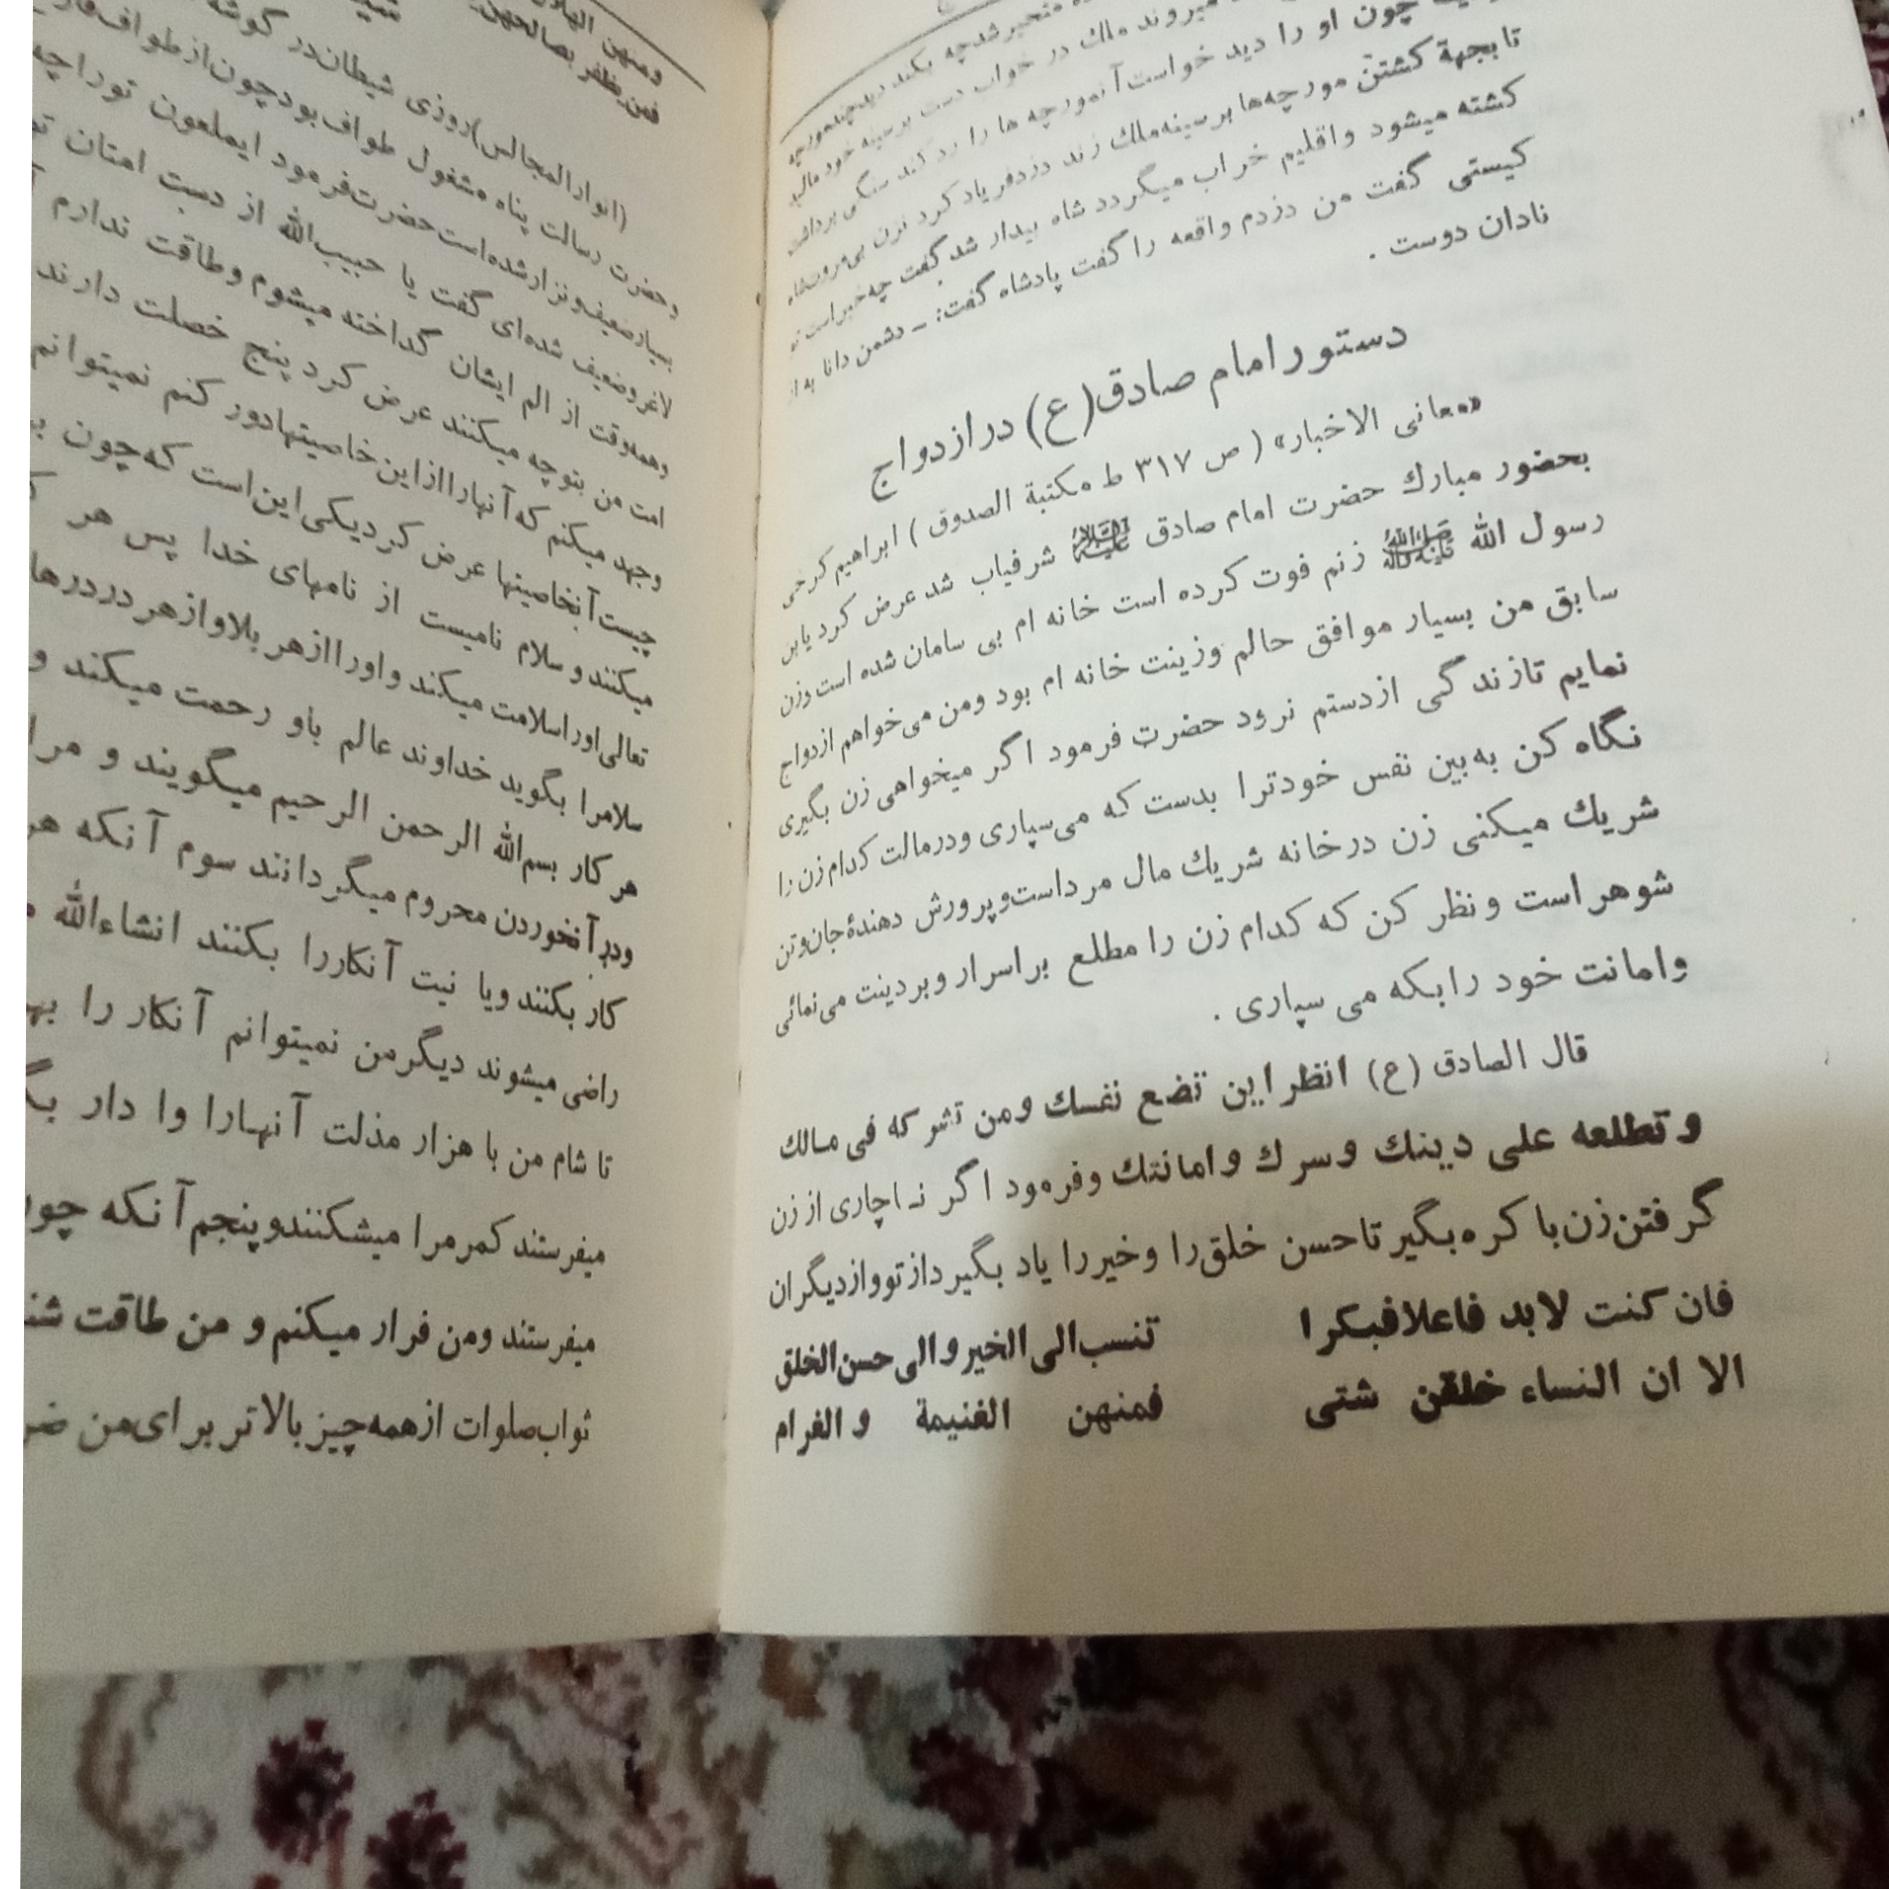 چون او را دید خواست آنمورچه ها را رد کند سنگی برداشت
تا بجهة کشتن مورچه‌ها بر سینه ملك زند دزد فریاد کرد نزن بی‌مروت شاه
کشته میشود و اقلیم خراب میگردد شاه بیدار شد گفت چه خبر است تو
کیستی گفت من دزدم واقعه را گفت پادشاه گفت: ـ دشمن دانا به از
نادان دوست .
دستور امام صادق (ع) در ازدواج
«معانی الاخبار» (ص ۳۱۷ ط مکتبة الصدوق) ابراهیم کرخی
بحضور مبارك حضرت امام صادق علیه السلام شرفیاب شد عرض کرد یابن
رسول الله صلی الله علیه وآله زنم فوت کرده است خانه ام بی سامان شده است وزن
سابق من بسیار موافق حالم وزینت خانه ام بود ومن می‌خواهم ازدواج
نمایم تا زندگی از دستم نرود حضرت فرمود اگر میخواهی زن بگیری
نگاه کن به بین نفس خودترا بدست که می‌سپاری ودرمالت کدام زن را
شریك میکنی زن درخانه شریك مال مرد است و پرورش دهندهٔ جان و تن
شوهر است و نظر کن که کدام زن را مطلع بر اسرار و بر دینت می‌نمائی
وامانت خود را بکه می سپاری .
قال الصادق (ع) انظر این تضع نفسك ومن تشرکه فی مالك
و تطلعه علی دینك وسرك وامانتك وفرمود اگر ناچاری از زن
گرفتن زن باکره بگیر تا حسن خلق را وخیر را یاد بگیرد از تو و از دیگران
فان کنت لابد فاعلا فبکرا تنسب الی الخیر و الی حسن الخلق
الا ان النساء خلقن شتی فمنهن الغنیمة و الغرام
ومنهن الهلال
فمن یظفر بصالحهن
(انوار المجالس) روزی شیطان در گوشه
وحضرت رسالت پناه مشغول طواف بود چون از طواف فارغ
بسیار ضعیف و نزار شده است حضرت فرمود ایملعون تو را چه
لاغر وضعیف شده‌ای گفت یا حبیب الله از دست امتان تو
وهمه وقت از الم ایشان گداخته میشوم وطاقت ندارم
امت من بتو چه میکنند عرض کرد پنج خصلت دارند
وجهد میکنم که آنها را از این خاصیتها دور کنم نمیتوانم
چیست آنخاصیتها عرض کرد یکی این است که چون
میکنند و سلام نامیست از نامهای خدا پس هر
تعالی او را سلامت میکند و اورا از هر بلا و از هر درد رها
سلامرا بگوید خداوند عالم باو رحمت میکند و
هر کار بسم الله الرحمن الرحیم میگویند و مرا
ودر آنخوردن محروم میگردانند سوم آنکه هر
کار بکنند ویا نیت آنکاررا بکنند انشاءالله
راضی میشوند دیگر من نمیتوانم آنکار را
تا شام من با هزار مذلت آنهارا وا دار
میفرستند کمر مرا میشکنند و پنجم آنکه چون
میفرستند ومن فرار میکنم و من طاقت
ثواب صلوات از همه چیز بالاتر برای من